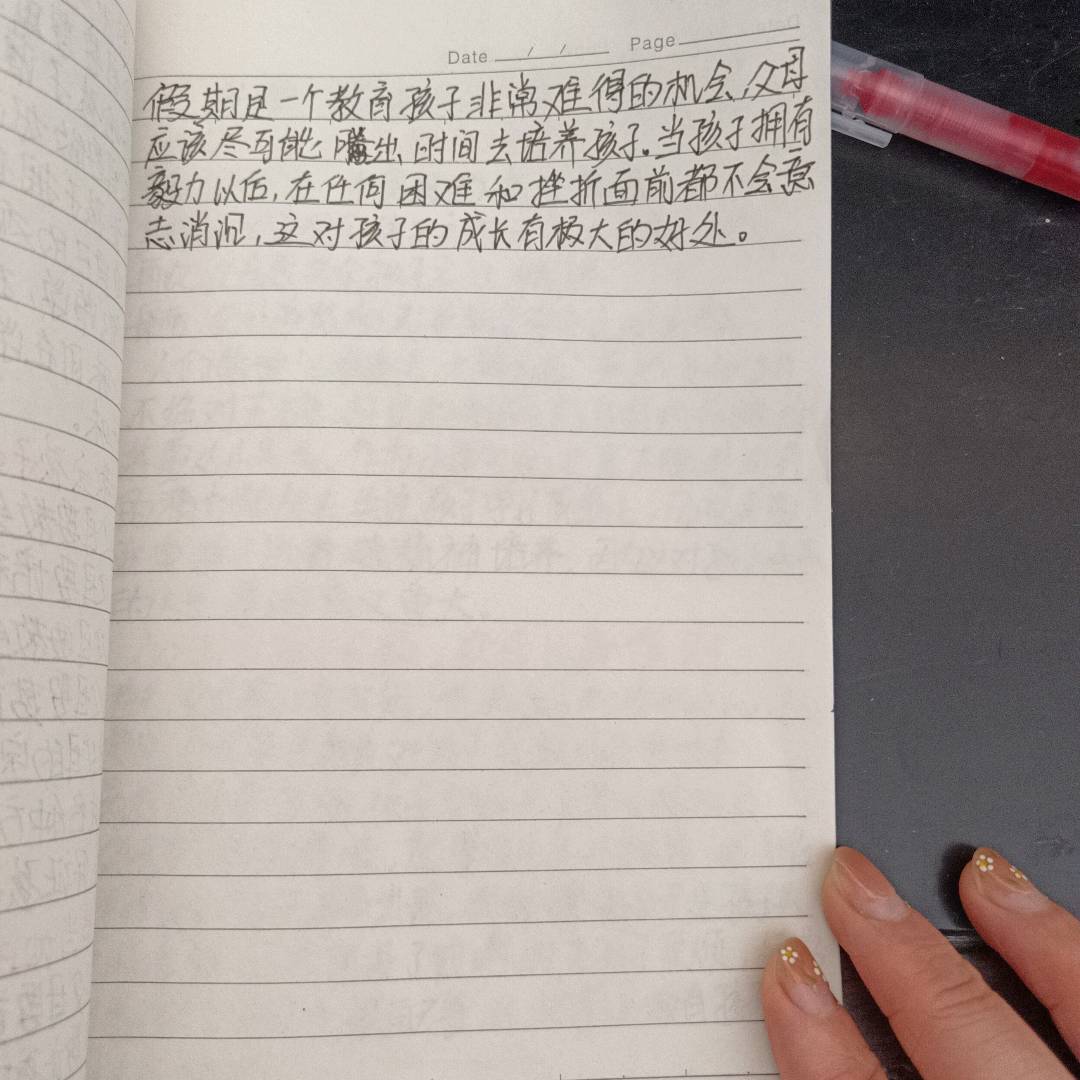 Date / / Page
假期是一个教育孩子非常难得的机会,父母
应该尽可能腾出时间去培养孩子。当孩子拥有
毅力以后,在任何困难和挫折面前都不会意
志消沉,这对孩子的成长有极大的好处。